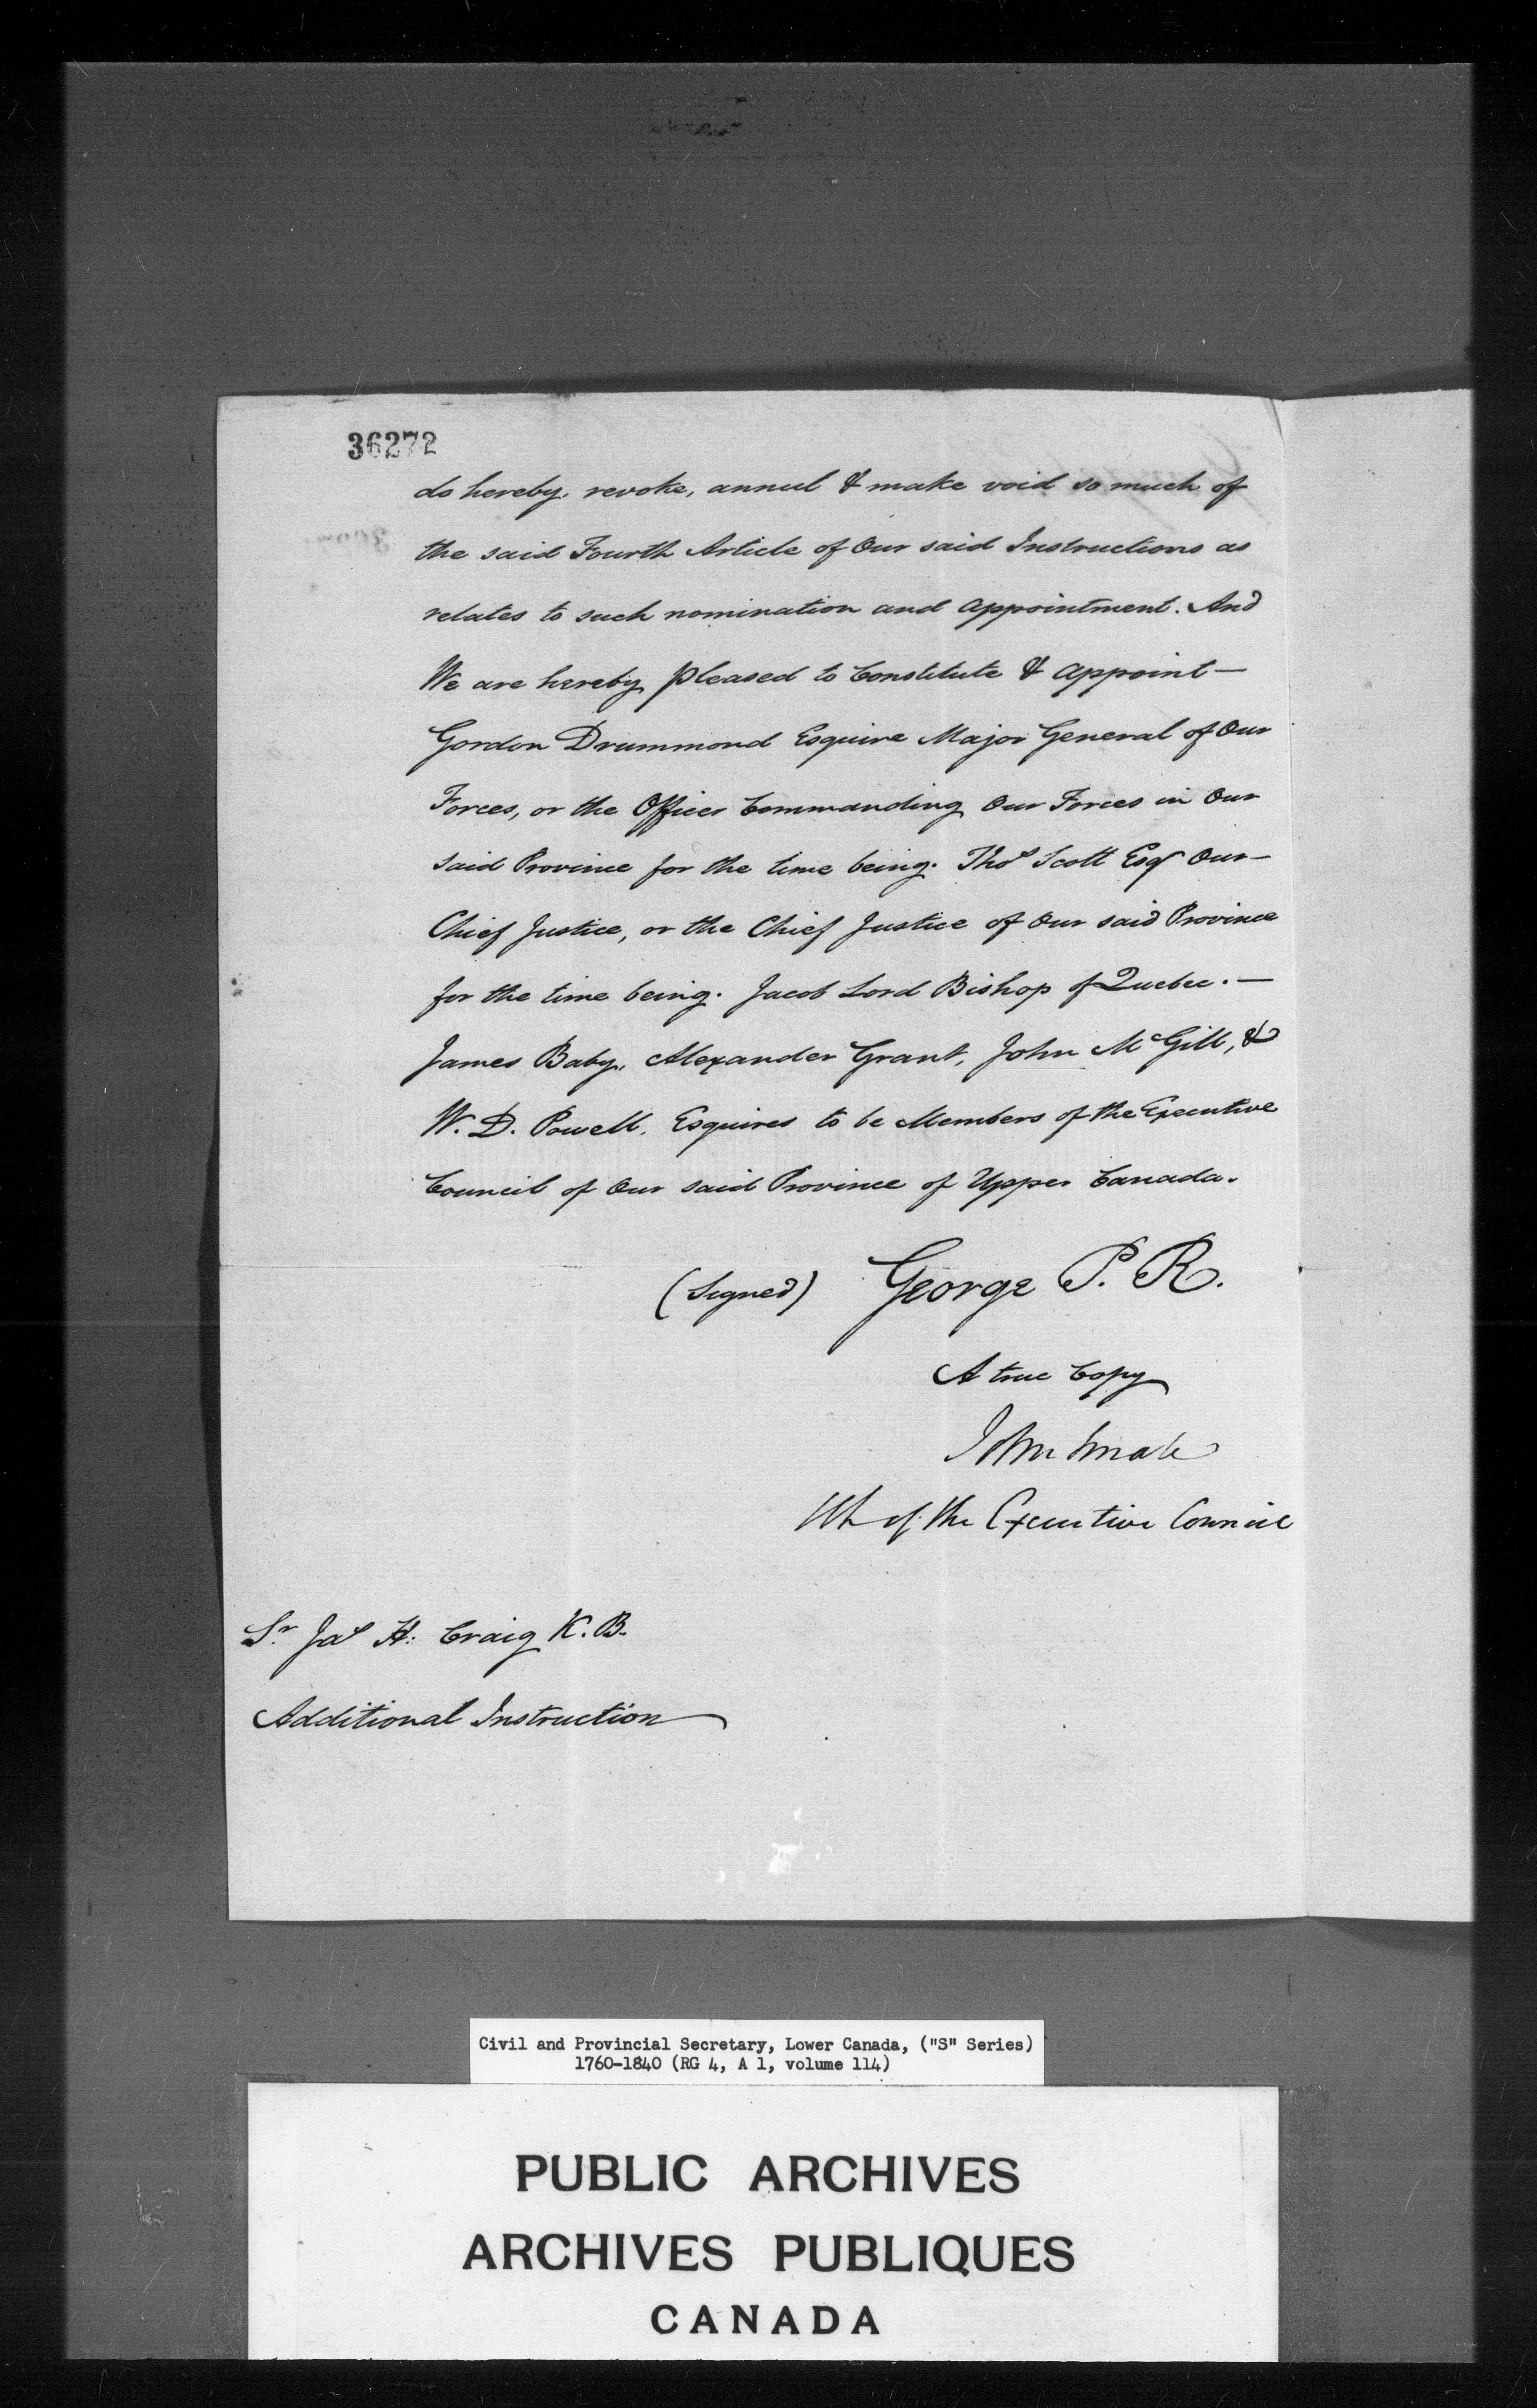 36272
do hereby revoke, annul & make void so much of
the said Fourth Article of Our said Instructions as
relates to such nomination and appointment. And
We are hereby pleased to Constitute & appoint—
Gordon Drummond Esquire Major General of Our
Forces, or the Officer Commanding Our Forces in Our
said Province for the time being. Thos Scott Esqr Our—
Chief Justice, or the Chief Justice of Our said Province
for the time being. Jacob Lord Bishop of Quebec.—
James Baby, Alexander Grant, John McGill, &
W. D. Powell, Esquires to be Members of the Executive
Council of Our said Province of Upper Canada.
(Signed) George P. R.
A true Copy
John Small
Clk of the Executive Council
Sr Jas H: Craig K. B.
Additional Instruction
Civil and Provincial Secretary, Lower Canada, ("S" Series)
1760-1840 (RG 4, A 1, volume 114)
PUBLIC ARCHIVES
ARCHIVES PUBLIQUES
CANADA